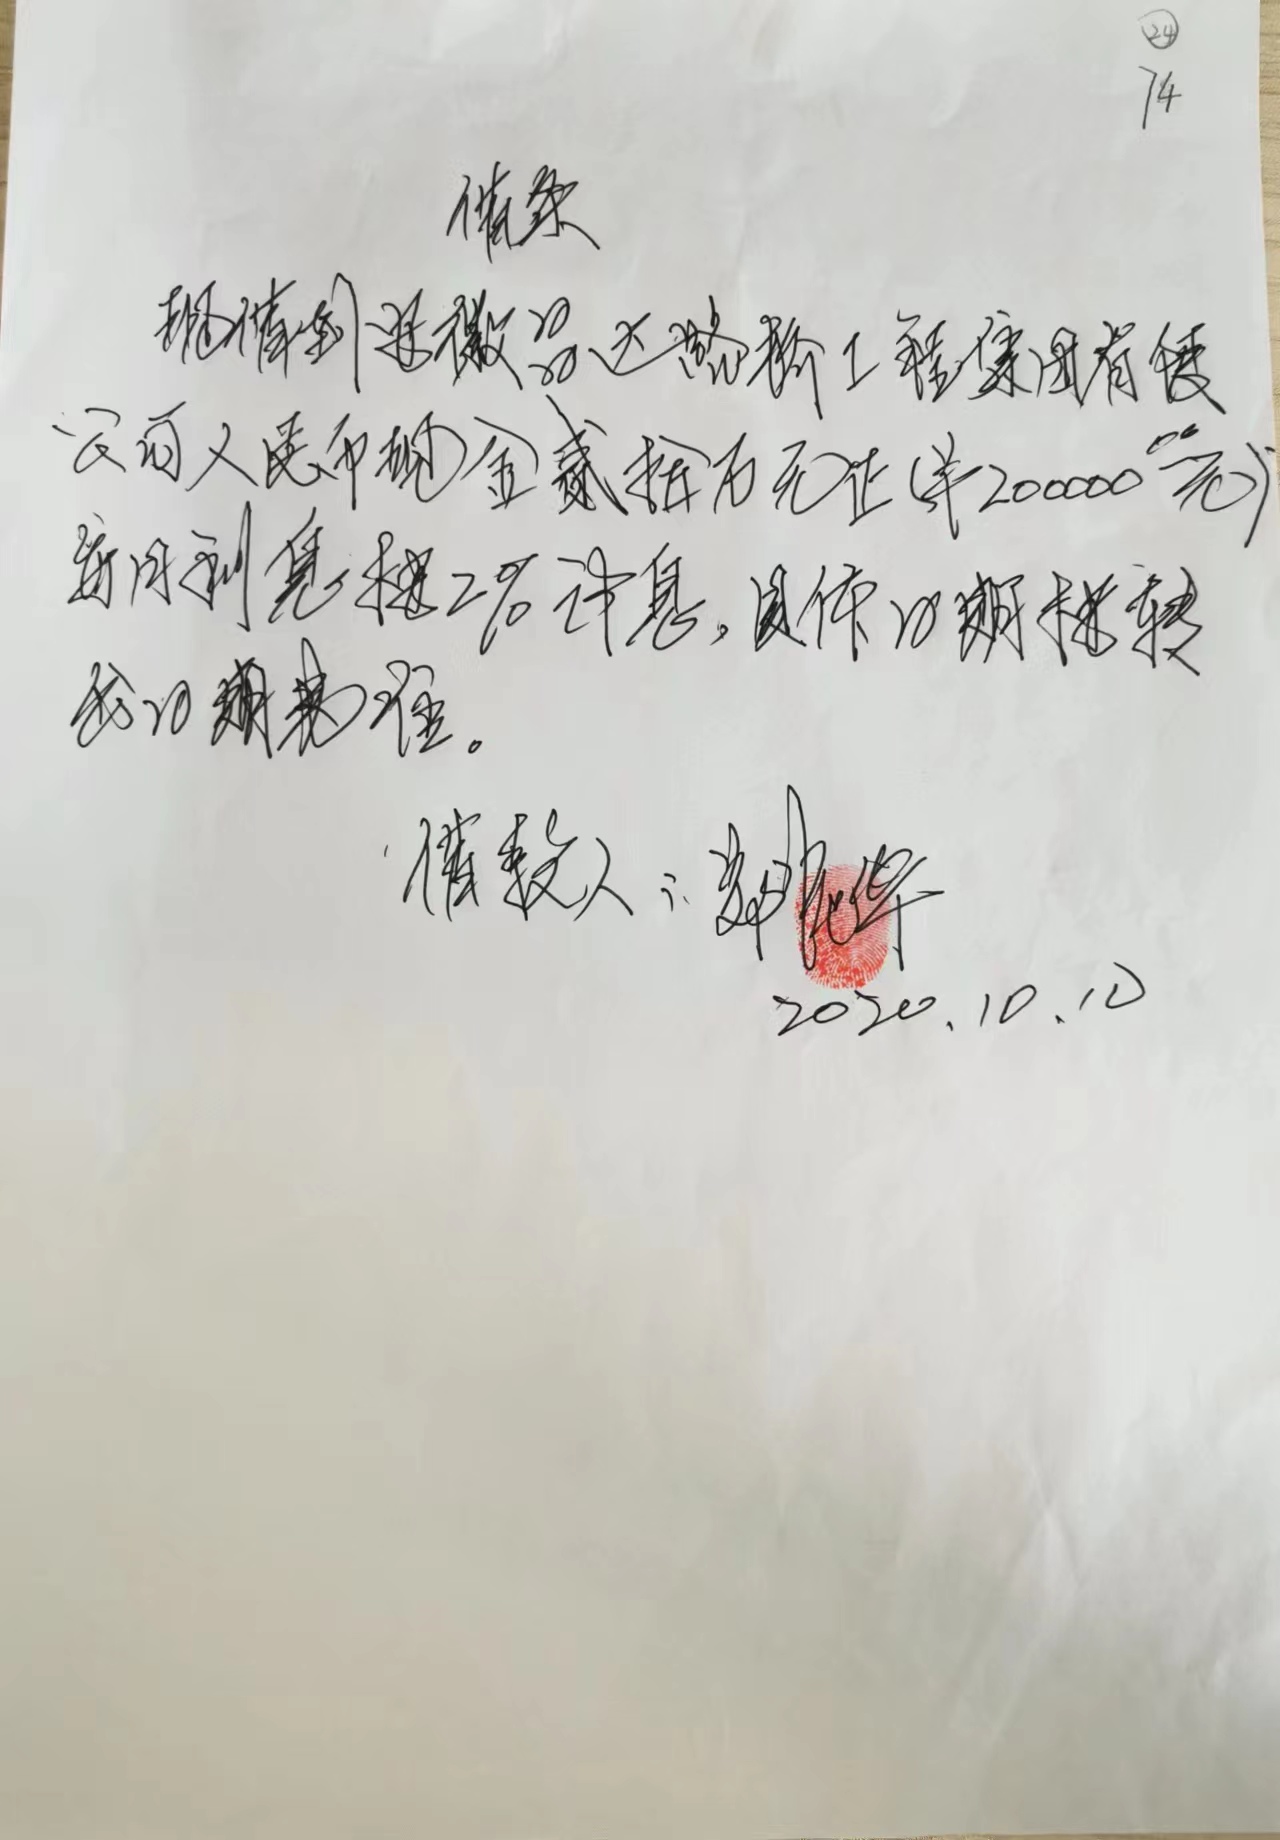 24
74
借条
现借到安徽昌达路桥工程集团有限
公司人民币现金贰拾万元正(¥200000.00元)
每月利息按2%计息。具体日期按转
我日期为准。
借款人：郭华
2020.10.10